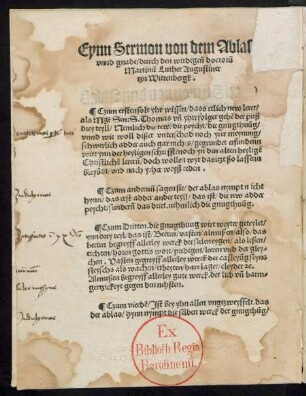 Eynn Sermon von dem Ablas
vnnd gnade / durch den wirdigen doctorn
Martinu Luther Augustiner
tzu Wittenbergk.
¶ Czum ersten solt yhr wissen / das etlich new lerer /
als Mgr̄ Sen: S. Thomas vn̄ yhre folger gebē der puß
drey teyll / Nemlich die rew / die peycht / die gnugthuūg /
vnnd wie woll dißer vnterscheid noch yrer meynung /
schwerlich adder auch gar nichts / gegrundet erfunden
wirt ynn der heyligen schrifft / noch yn den alten heylige
Christlichē lerern / doch wollen wyr das itzt ßo lassenn
bleyben / vnd nach yhrer weyß reden.
¶ Czum andernn sagen sie / der ablas nympt nicht
hynn / das erst adder ander teyll / das ist / die rew adder
peycht / sundernn das dritt / nehmlich die gnugthuūg.
¶ Czum Dritten. die gnugthuūg wirt weyter geteylet /
ynn drey teyl / das ist / Beeten / vasten / almußen / alßo / das
beeten begreyff allerley werck der selen eygen / als leßen /
tichten / horen gottis wort / predigen / leeren vnd der gley=
chen. Vasten begreyff allerley werck der casteyūg / seyns
fleyschs als wachen / erbeyten / hart lager / cleyder ꝛc.
Almußen begreyff allerley gute werck der lieb vn̄ barm=
hertzickeyt gegen den nehsten.
¶ Czum vierdē / Ist bey yhn allen vngetzweyffelt. das
der ablas / hynn nympt die selben werck der gnugthuūg /
Ex
Biblioth. Regia
Berolinensi.